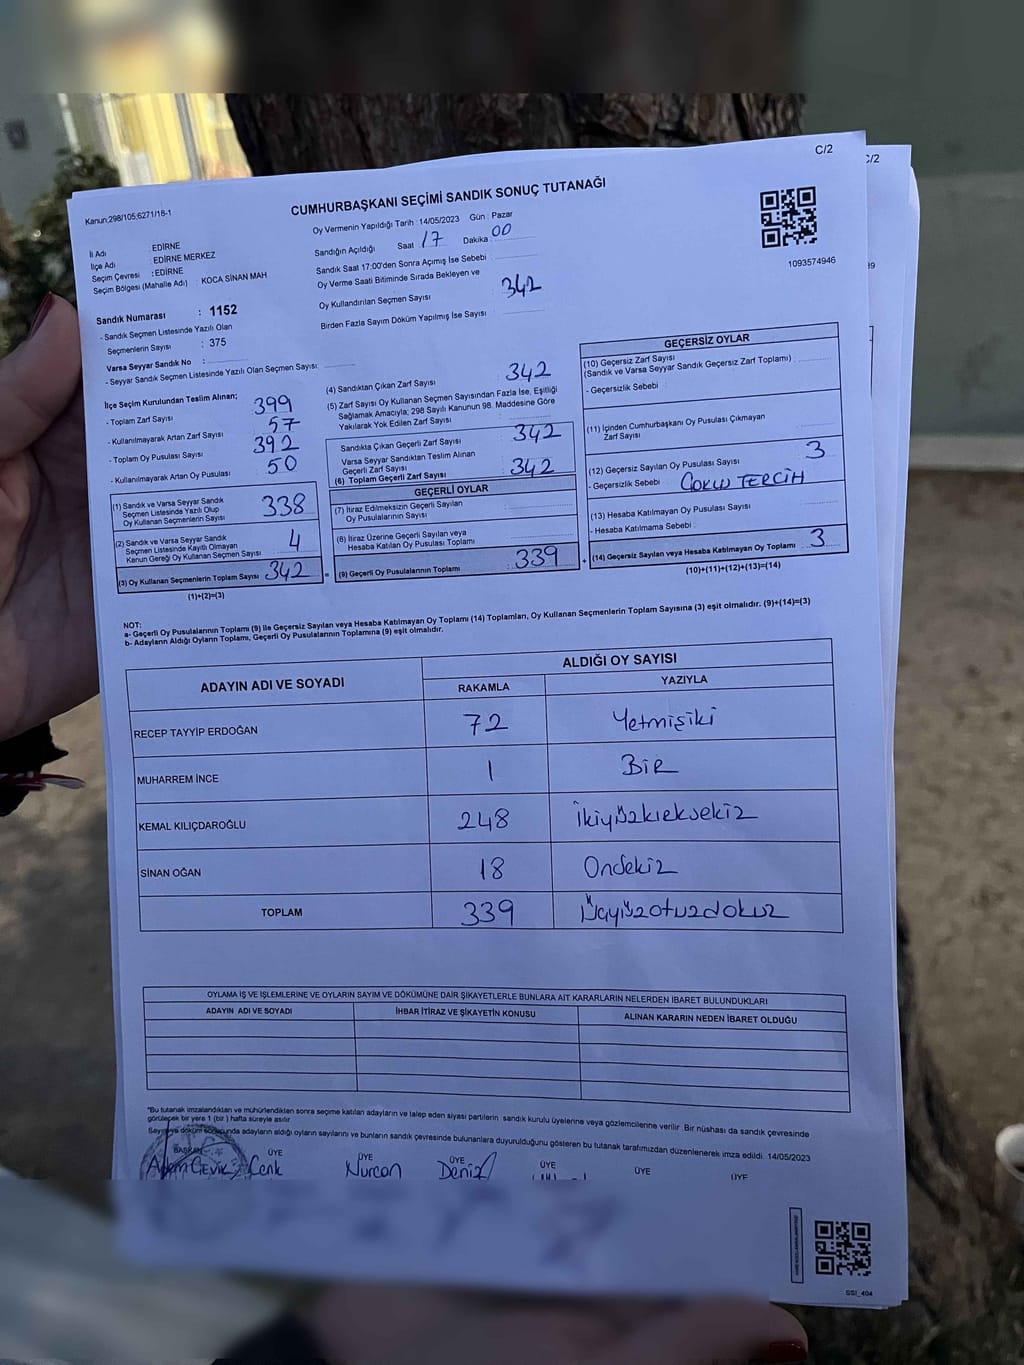 C/2
C/2
Kanun:298/105;6271/18-1
CUMHURBAŞKANI SEÇİMİ SANDIK SONUÇ TUTANAĞI
1093574946
İl Adı : EDİRNE
İlçe Adı : EDİRNE MERKEZ
Seçim Çevresi : EDİRNE
Seçim Bölgesi (Mahalle Adı) : KOCA SİNAN MAH
Sandık Numarası : 1152
- Sandık Seçmen Listesinde Yazılı Olan
Seçmenlerin Sayısı : 375
Varsa Seyyar Sandık No :
- Seyyar Sandık Seçmen Listesinde Yazılı Olan Seçmen Sayısı:
İlçe Seçim Kurulundan Teslim Alınan;
- Toplam Zarf Sayısı 399
- Kullanılmayarak Artan Zarf Sayısı 57
- Toplam Oy Pusulası Sayısı 392
- Kullanılmayarak Artan Oy Pusulası 50
(1) Sandık ve Varsa Seyyar Sandık
Seçmen Listesinde Yazılı Olup
Oy Kullanan Seçmenlerin Sayısı 338
(2) Sandık ve Varsa Seyyar Sandık
Seçmen Listesinde Kayıtlı Olmayan
Kanun Gereği Oy Kullanan Seçmen Sayısı 4
(3) Oy Kullanan Seçmenlerin Toplam Sayısı 342
(1)+(2)=(3)
Oy Vermenin Yapıldığı Tarih : 14/05/2023 Gün : Pazar
Sandığın Açıldığı Saat 17 Dakika 00
Sandık Saat 17:00'den Sonra Açımış İse Sebebi :
Oy Verme Saati Bitiminde Sırada Bekleyen ve
Oy Kullandırılan Seçmen Sayısı 342
Birden Fazla Sayım Döküm Yapılmış İse Sayısı :
(4) Sandıktan Çıkan Zarf Sayısı 342
(5) Zarf Sayısı Oy Kullanan Seçmen Sayısından Fazla İse, Eşitliği
Sağlamak Amacıyla; 298 Sayılı Kanunun 98. Maddesine Göre
Yakılarak Yok Edilen Zarf Sayısı :
Sandıkta Çıkan Geçerli Zarf Sayısı 342
Varsa Seyyar Sandıktan Teslim Alınan
Geçerli Zarf Sayısı
(6) Toplam Geçerli Zarf Sayısı 342
GEÇERLİ OYLAR
(7) İtiraz Edilmeksizin Geçerli Sayılan
Oy Pusulalarının Sayısı
(8) İtiraz Üzerine Geçerli Sayılan veya
Hesaba Katılan Oy Pusulası Toplamı
= (9) Geçerli Oy Pusulalarının Toplamı : 339
GEÇERSİZ OYLAR
(10) Geçersiz Zarf Sayısı
(Sandık ve Varsa Seyyar Sandık Geçersiz Zarf Toplamı) :
- Geçersizlik Sebebi :
(11) İçinden Cumhurbaşkanı Oy Pusulası Çıkmayan
Zarf Sayısı
(12) Geçersiz Sayılan Oy Pusulası Sayısı 3
- Geçersizlik Sebebi : ÇOKLU TERCİH
(13) Hesaba Katılmayan Oy Pusulası Sayısı
- Hesaba Katılmama Sebebi :
+ (14) Geçersiz Sayılan veya Hesaba Katılmayan Oy Toplamı 3
(10)+(11)+(12)+(13)=(14)
NOT:
a- Geçerli Oy Pusulalarının Toplamı (9) ile Geçersiz Sayılan veya Hesaba Katılmayan Oy Toplamı (14) Toplamları, Oy Kullanan Seçmenlerin Toplam Sayısına (3) eşit olmalıdır. (9)+(14)=(3)
b- Adayların Aldığı Oyların Toplamı, Geçerli Oy Pusulalarının Toplamına (9) eşit olmalıdır.
ADAYIN ADI VE SOYADI ALDIĞI OY SAYISI
RAKAMLA YAZIYLA
RECEP TAYYİP ERDOĞAN 72 Yetmişiki
MUHARREM İNCE 1 BİR
KEMAL KILIÇDAROĞLU 248 İkiyüzkırksekiz
SİNAN OĞAN 18 Onsekiz
TOPLAM 339 Üçyüzotuzdokuz
OYLAMA İŞ VE İŞLEMLERİNE VE OYLARIN SAYIM VE DÖKÜMÜNE DAİR ŞİKAYETLERLE BUNLARA AİT KARARLARIN NELERDEN İBARET BULUNDUKLARI
ADAYIN ADI VE SOYADI İHBAR İTİRAZ VE ŞİKAYETİN KONUSU ALINAN KARARIN NEDEN İBARET OLDUĞU
"Bu tutanak imzalandıktan ve mühürlendikten sonra seçime katılan adayların ve talep eden siyasi partilerin sandık kurulu üyelerine veya gözlemcilerine verilir. Bir nüshası da sandık çevresinde
görülecek bir yere 1 (bir) hafta süreyle asılır.
Sayım ve döküm sonucunda adayların aldığı oyların sayılarını ve bunların sandık çevresinde bulunanlara duyurulduğunu gösteren bu tutanak tarafımızdan düzenlenerek imza edildi. 14/05/2023
BAŞKAN ÜYE ÜYE ÜYE ÜYE ÜYE ÜYE
Adem ÇEVİK Cenk Nurcan Deniz
SSI_404